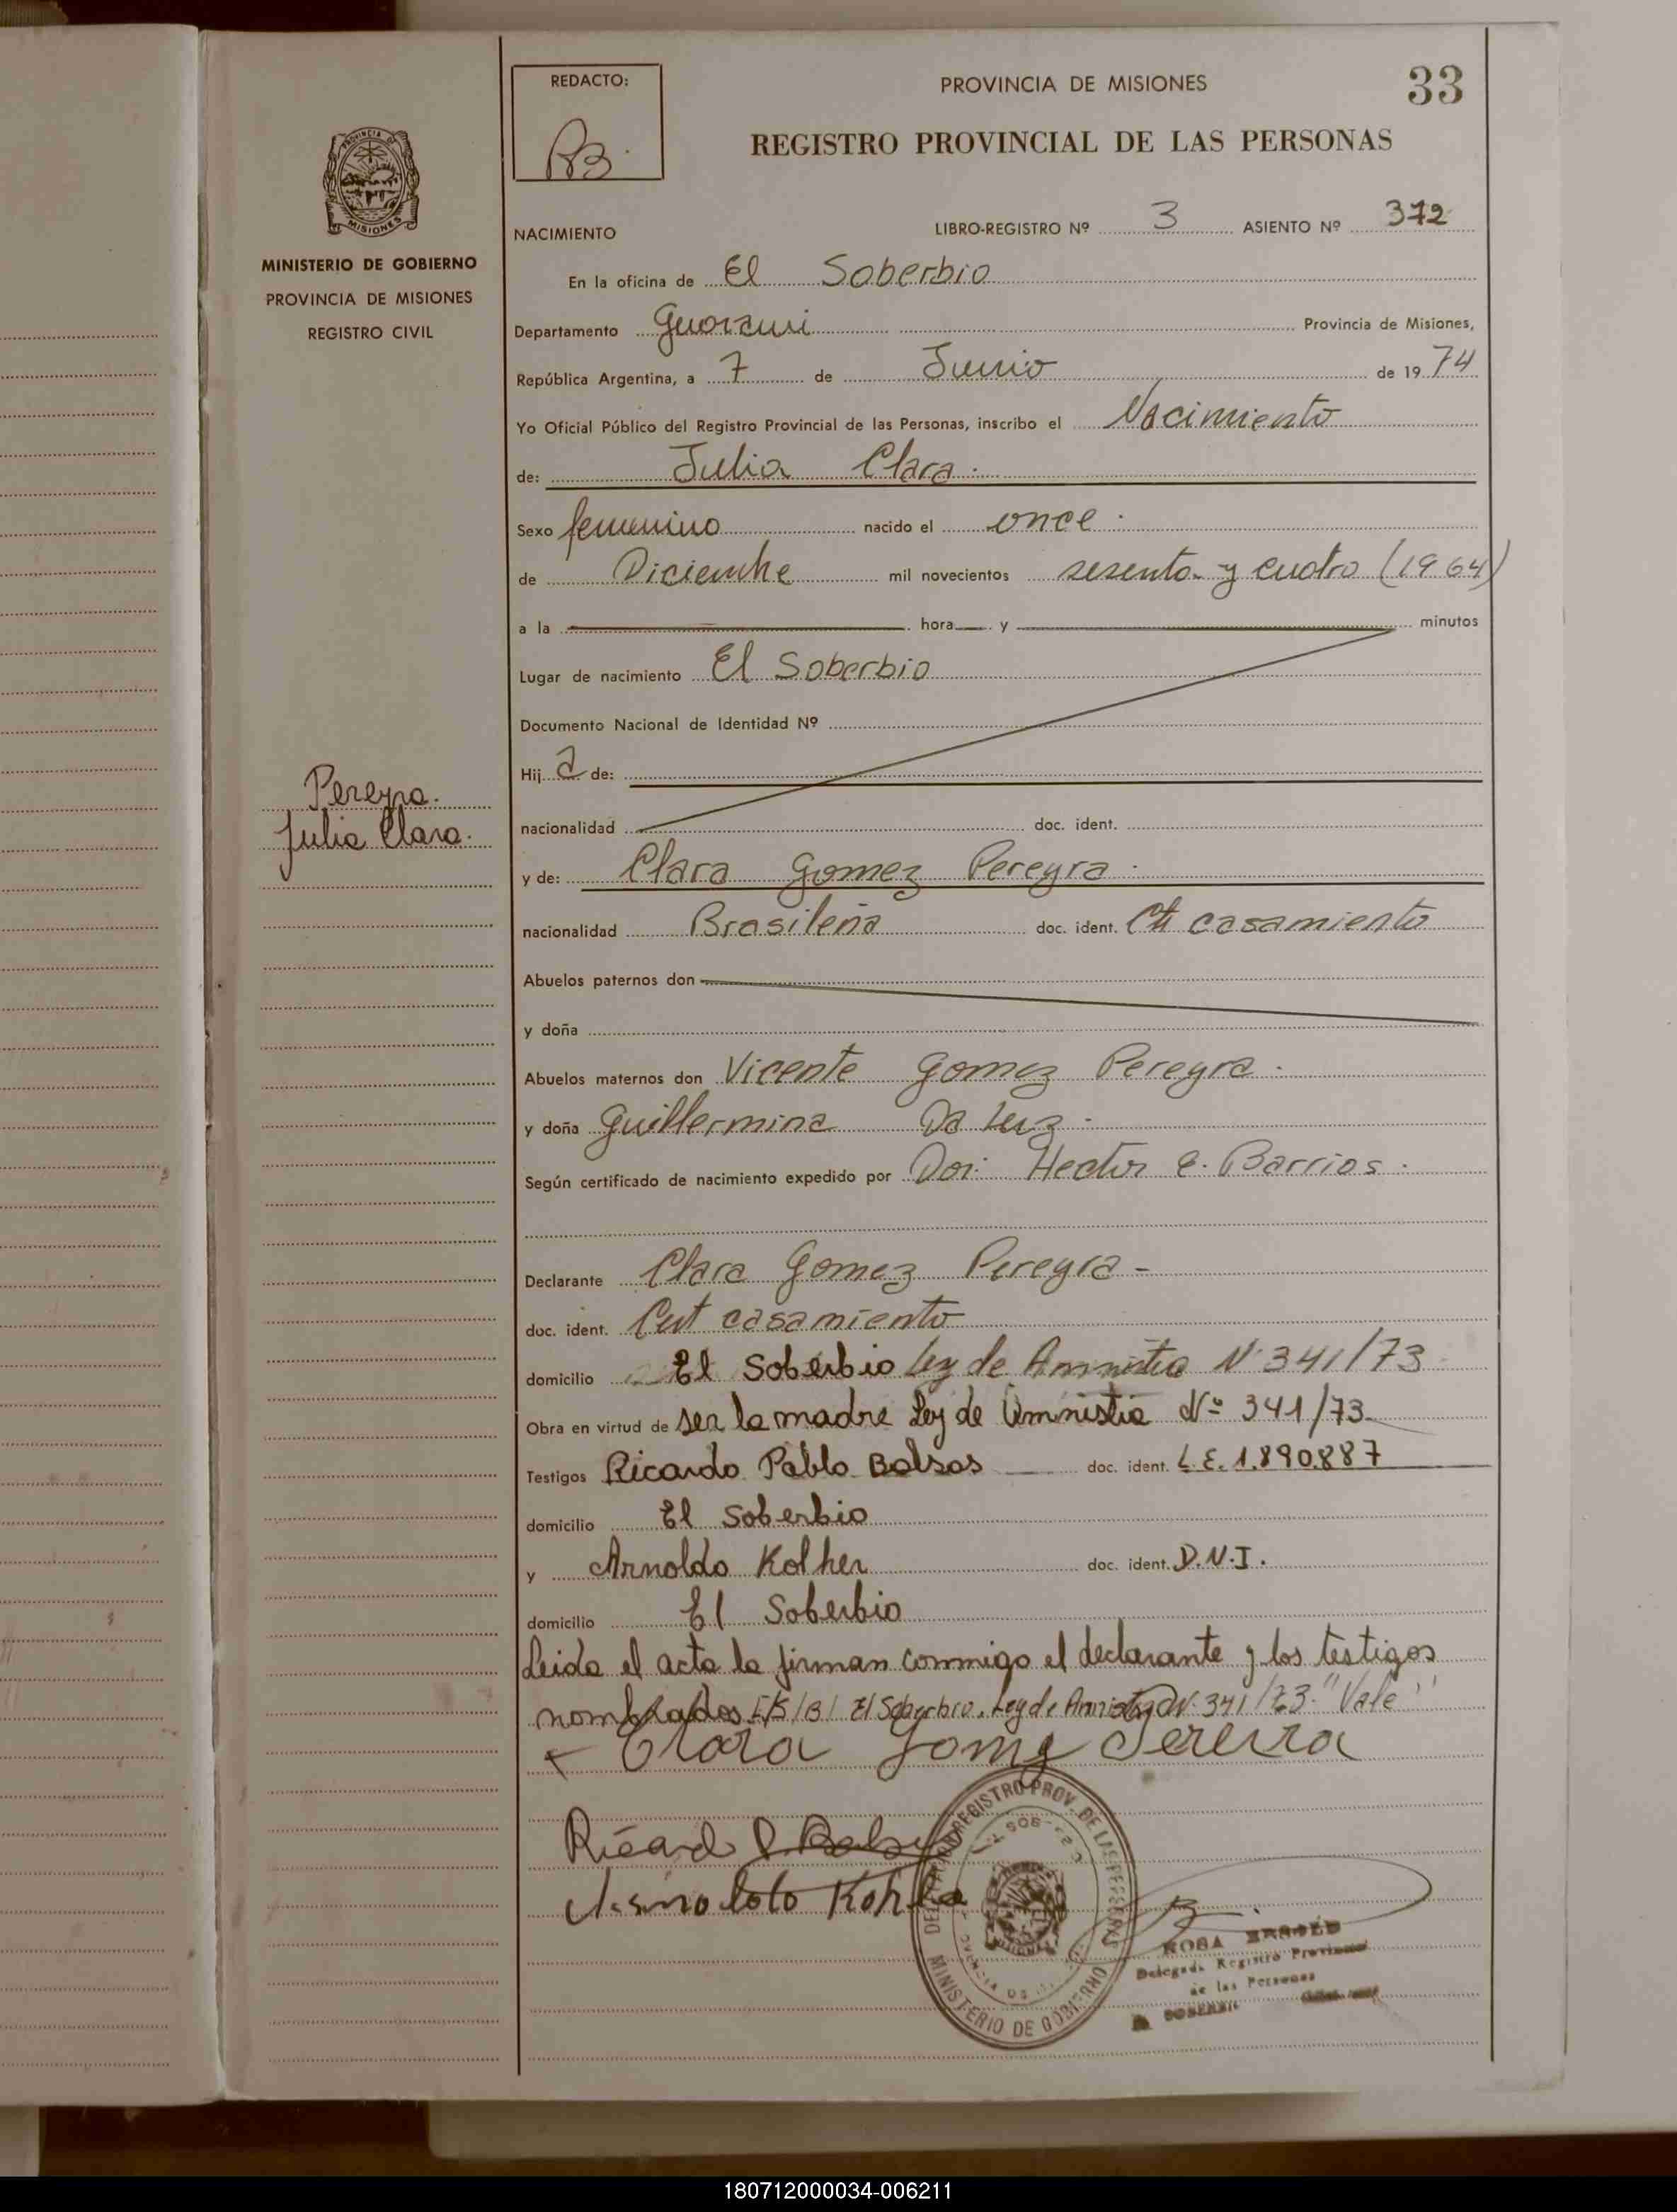 REDACTO:
PROVINCIA DE MISIONES
33
REGISTRO PROVINCIAL DE LAS PERSONAS
PROVINCIA DE
MISIONES
MINISTERIO DE GOBIERNO
PROVINCIA DE MISIONES
REGISTRO CIVIL
NACIMIENTO
LIBRO-REGISTRO Nº 3 ASIENTO Nº 372
En la oficina de El Soberbio
Departamento Guarani Provincia de Misiones,
República Argentina, a 7 de Junio de 1974
Yo Oficial Público del Registro Provincial de las Personas, inscribo el Nacimiento
de: Julia Clara.
Sexo femenino nacido el once.
de Diciembre mil novecientos sesenta y cuatro (1964)
a la hora y minutos
Lugar de nacimiento El Soberbio
Documento Nacional de Identidad Nº
Hija de:
Pereyra.
Julia Clara.
nacionalidad doc. ident.
y de: Clara Gomez Pereyra.
nacionalidad Brasileña doc. ident. Ct casamiento
Abuelos paternos don
y doña
Abuelos maternos don Vicente Gomez Pereyra.
y doña Guillermina Da Luz.
Según certificado de nacimiento expedido por Doi: Hector E. Barrios.
Declarante Clara Gomez Pereyra -
doc. ident. Cert casamiento
domicilio El Soberbio Ley de Amnistia N 341/73
Obra en virtud de ser la madre Ley de Amnistia Nº 341/73
Testigos Ricardo Pablo Balsas doc. ident. L.E. 1.890.887
domicilio El Soberbio
y Arnoldo Kolher doc. ident. D.N.I.
domicilio El Soberbio
Leida el acta la firman conmigo el declarante y los testigos
nombrados E/S/B/ El Soberbio. Ley de Amnistia N. 341/73. "Vale"
Clara Gome Pereira
REGISTRO PROV. DE LAS PERSONAS
MINISTERIO DE GOBIERNO
ROSA
Delegada Registro Provincial
de las Personas
SOBERBIO
180712000034-006211